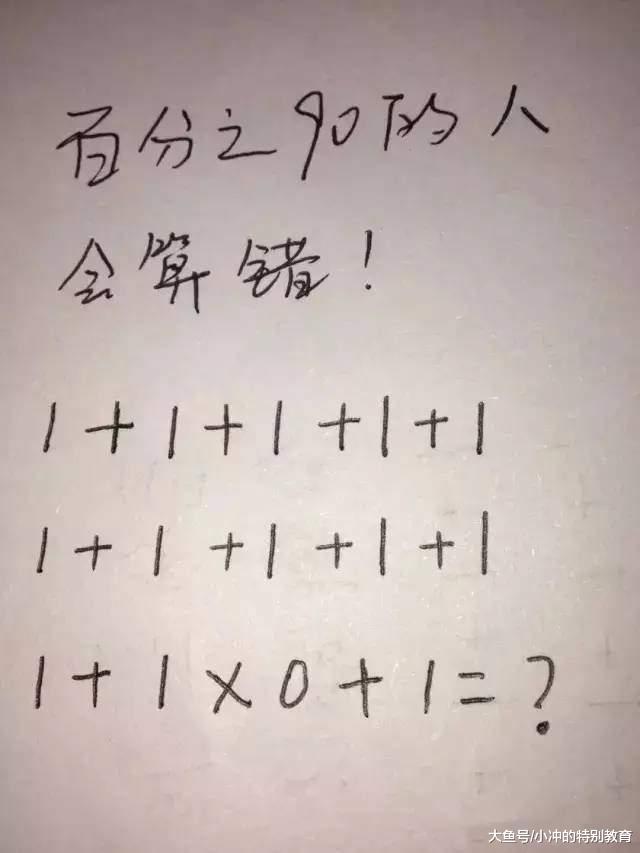 百分之90的人
会算错!
1+1+1+1+1
1+1+1+1+1
1+1×0+1=?
大鱼号/小冲的特别教育